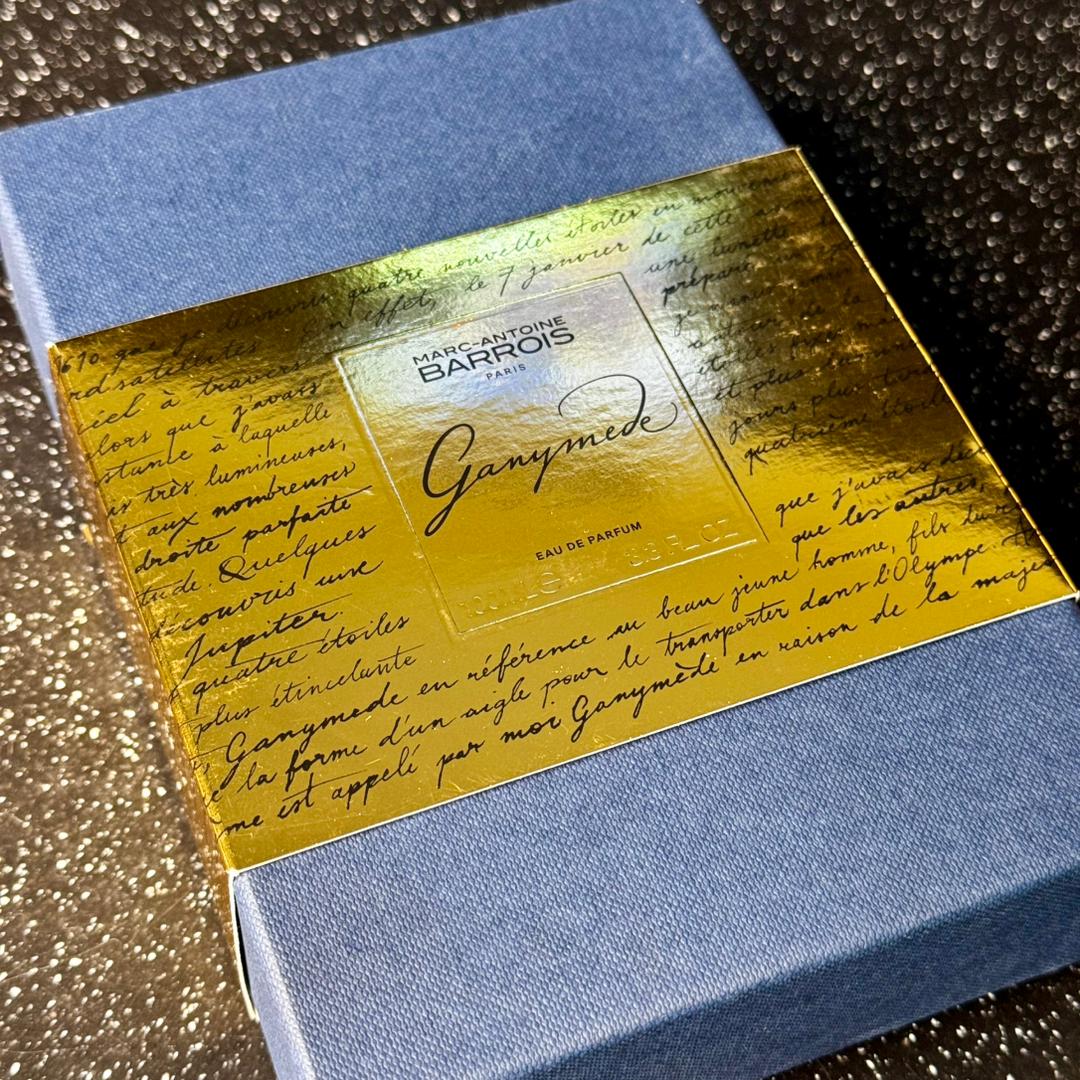 1610 que je découvris quatre nouvelles étoiles en mouvement
satellites en effet, le 7 janvier de cette
ciel à travers
une lunette
lors que j'avais
préparé
stance à laquelle
je
es très lumineuses,
autour de la
t aux nombreuses
étoiles fixes
droite parfaite
et plus
tude. Quelques
jours plus
découvris une
quatrième étoile
Jupiter.
MARC-ANTOINE
BARROIS
PARIS
Ganymede
EAU DE PARFUM
100ML 3.3 FL OZ
que j'avais
quatre étoiles
que les autres,
plus étincelante
Ganymede en référence au beau jeune homme, fils du
la forme d'un aigle pour le transporter dans l'Olympe.
me est appelé par moi Ganymède en raison de la majes